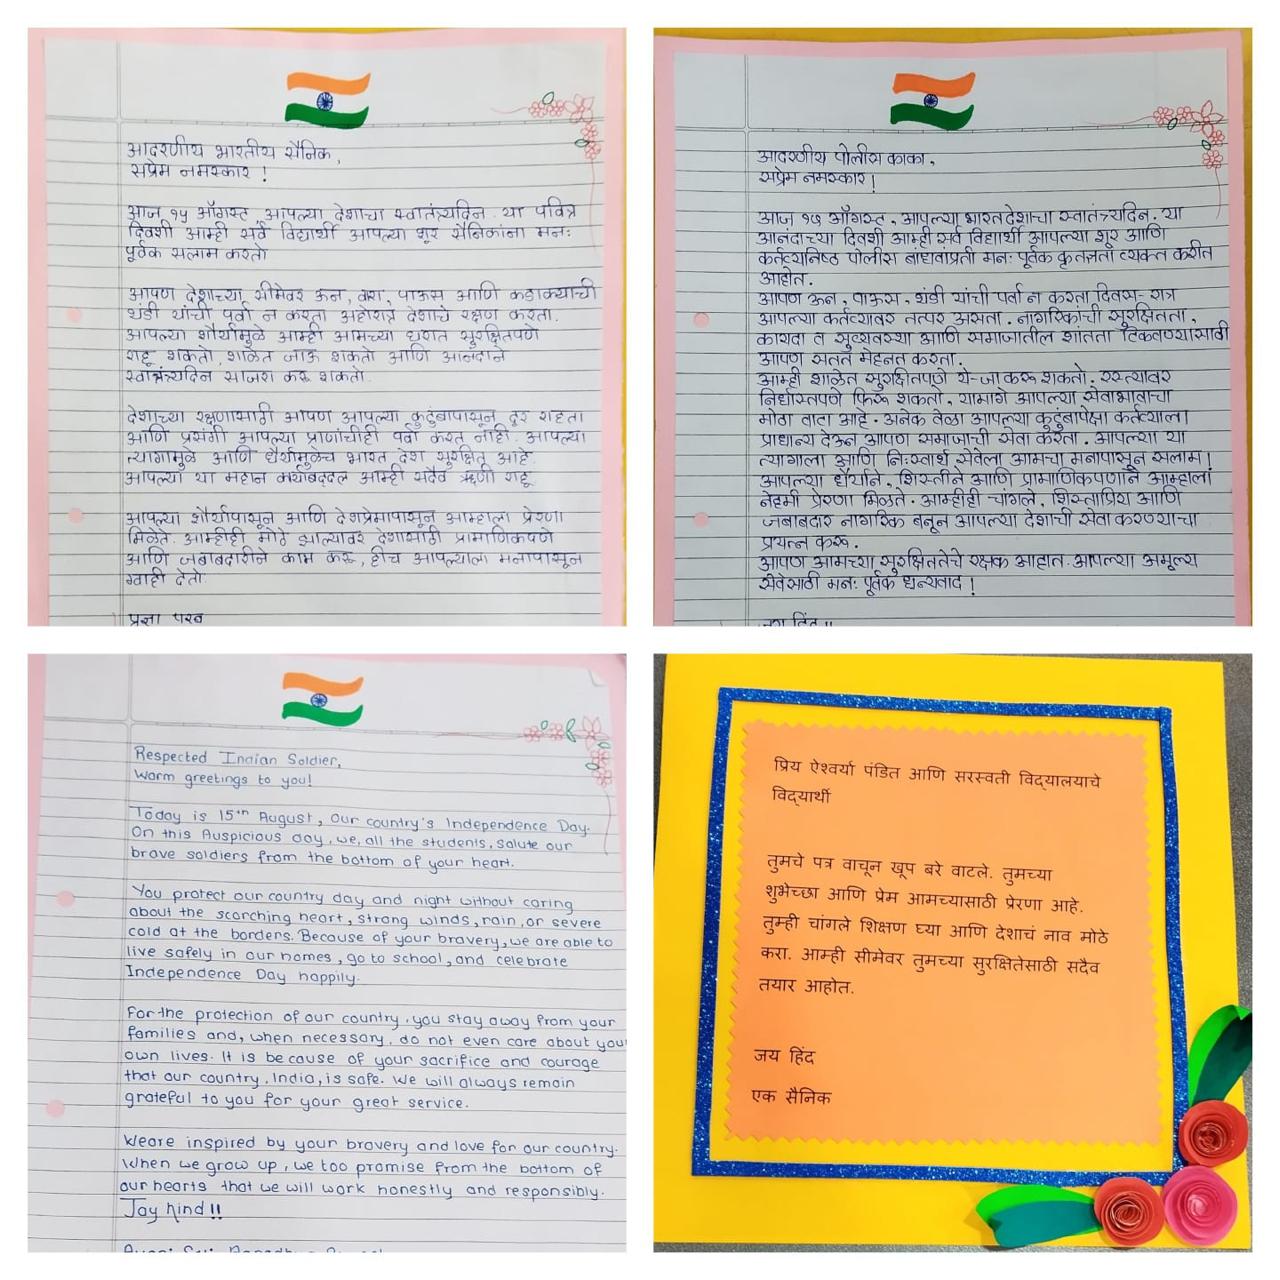 आदरणीय भारतीय सैनिक,
सप्रेम नमस्कार !
आज १५ ऑगस्ट, आपल्या देशाचा स्वातंत्र्यदिन. या पवित्र
दिवशी आम्ही सर्व विद्यार्थी आपल्या शूर सैनिकांना मनः
पूर्वक सलाम करतो
आपण देशाच्या सीमेवर ऊन, वारा, पाऊस आणि कडाक्याची
थंडी यांची पर्वा न करता अहोरात्र देशाचे रक्षण करता.
आपल्या शौर्यामुळे आम्ही आमच्या घरात सुरक्षितपणे
राहू शकतो, शाळेत जाऊ शकतो आणि आनंदाने
स्वातंत्र्यदिन साजरा करू शकतो.
देशाच्या रक्षणासाठी आपण आपल्या कुटुंबापासून दूर राहता
आणि प्रसंगी आपल्या प्राणांचीही पर्वा करत नाही. आपल्या
त्यागामुळे आणि धैर्यामुळेच भारत देश सुरक्षित आहे.
आपल्या या महान कार्याबद्दल आम्ही सदैव ऋणी राहू
आपल्या शौर्यापासून आणि देशप्रेमापासून आम्हाला प्रेरणा
मिळते. आम्हीही मोठे झाल्यावर देशासाठी प्रामाणिकपणे
आणि जबाबदारीने काम करू, हीच आपल्याला मनापासून
ग्वाही देतो.
प्रज्ञा परब
आदरणीय पोलीस काका,
सप्रेम नमस्कार !
आज १५ ऑगस्ट, आपल्या भारतदेशाचा स्वातंत्र्यदिन. या
आनंदाच्या दिवशी आम्ही सर्व विद्यार्थी आपल्या शूर आणि
कर्तव्यनिष्ठ पोलीस बांधवांप्रती मनः पूर्वक कृतज्ञता व्यक्त करीत
आहोत.
आपण ऊन, पाऊस, थंडी यांची पर्वा न करता दिवस-रात्र
आपल्या कर्तव्यावर तत्पर असता. नागरिकांची सुरक्षितता,
कायदा व सुव्यवस्था आणि समाजातील शांतता टिकवण्यासाठी
आपण सतत मेहनत करता.
आम्ही शाळेत सुरक्षितपणे ये-जा करू शकतो, रस्त्यावर
निर्धास्तपणे फिरू शकतो, यामागे आपल्या सेवाभावाचा
मोठा वाटा आहे. अनेक वेळा आपल्या कुटुंबापेक्षा कर्तव्याला
प्राधान्य देऊन आपण समाजाची सेवा करता. आपल्या या
त्यागाला आणि निःस्वार्थ सेवेला आमचा मनापासून सलाम!
आपल्या धैर्याने, शिस्तीने आणि प्रामाणिकपणाने आम्हाला
नेहमी प्रेरणा मिळते. आम्हीही चांगले, शिस्तप्रिय आणि
जबाबदार नागरिक बनून आपल्या देशाची सेवा करण्याचा
प्रयत्न करू.
आपण आमच्या सुरक्षिततेचे रक्षक आहात. आपल्या अमूल्य
सेवेसाठी मनः पूर्वक धन्यवाद !
जय हिंद !!
Respected Indian Soldier,
Warm greetings to you!
Today is 15th August, our country's Independence Day.
On this Auspicious day, we, all the students, salute our
brave soldiers from the bottom of your heart.
You protect our country day and night without caring
about the scorching heart, strong winds, rain, or severe
cold at the borders. Because of your bravery, we are able to
live safely in our homes, go to school, and celebrate
Independence Day happily.
For the protection of our country, you stay away from your
families and, when necessary, do not even care about your
own lives. It is because of your sacrifice and courage
that our country, India, is safe. We will always remain
grateful to you for your great service.
We are inspired by your bravery and love for our country.
When we grow up, we too promise from the bottom of
our hearts that we will work honestly and responsibly.
Jay hind !!
प्रिय ऐश्वर्या पंडित आणि सरस्वती विद्यालयाचे
विद्यार्थी
तुमचे पत्र वाचून खूप बरे वाटले. तुमच्या
शुभेच्छा आणि प्रेम आमच्यासाठी प्रेरणा आहे.
तुम्ही चांगले शिक्षण घ्या आणि देशाचं नाव मोठे
करा. आम्ही सीमेवर तुमच्या सुरक्षितेसाठी सदैव
तयार आहोत.
जय हिंद
एक सैनिक